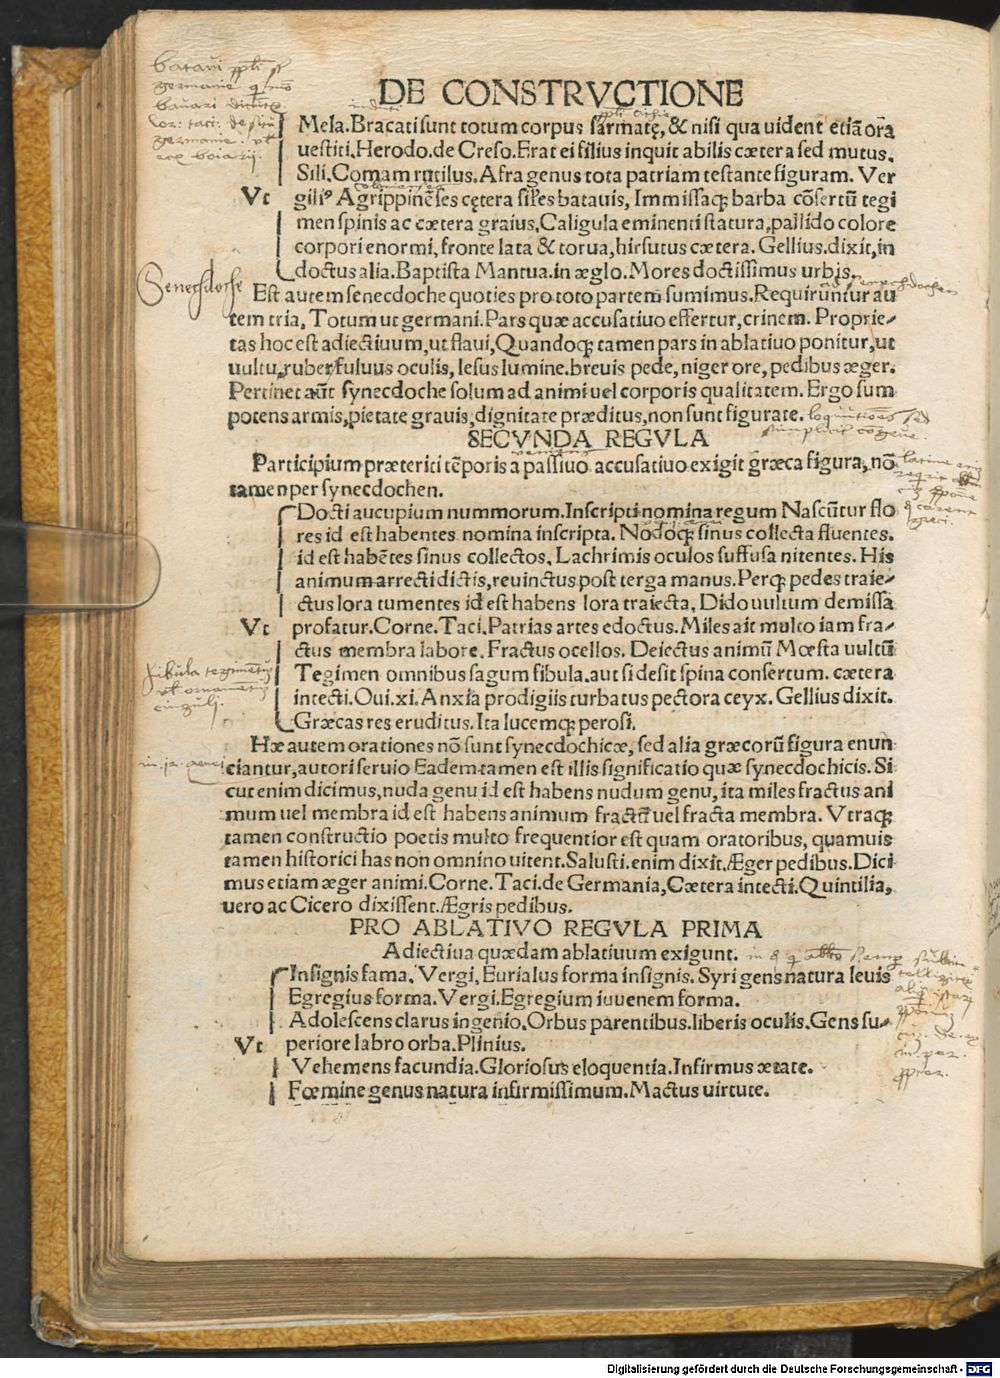 DE CONSTRVCTIONE
batavi
germanie
bavari
Mela.Bracati sunt totum corpus sarmatę, & nisi qua uident etiā ora
uestiti.Herodo.de Creso.Erat ei filius inquit abilis cætera sed mutus.
Sili.Comam rutilus.Afra genus tota patriam testante figuram. Ver
Vt
gili⁹ Agrippinēses cętera siles batauis, Immissaq; barba cōsertū tegi
men spinis ac cætera graius.Caligula eminenti statura, pallido colore
corpori enormi, fronte lata & torua, hirsutus cætera. Gellius.dixit, in
doctus alia.Baptista Mantua.in æglo.Mores doctissimus urbis.
Senecsdoche
Est autem senecdoche quoties pro toto partem sumimus.Requiruntur au
tem tria, Totum ut germani.Pars quæ accusatiuo effertur, crinem. Proprie-
tas hoc est adiectiuum, ut flaui, Quandoq; tamen pars in ablatiuo ponitur, ut
uultu, ruber, fuluus oculis, lesus lumine.breuis pede, niger ore, pedibus æger.
Pertinet aūt synecdoche solum ad animi uel corporis qualitatem. Ergo sum
potens armis, pietate grauis, dignitate præditus, non sunt figurate.
SECVNDA REGVLA
Participium præteriti tēporis a passiuo accusatiuo exigit græca figura, nō
tamen per synecdochen.
Docti aucupium nummorum.Inscripti nomina regum Nascūtur flo
res id est habentes nomina inscripta. Nodoq; sinus collecta fluentes.
id est habētes sinus collectos, Lachrimis oculos suffusa nitentes. His
animum arrecti dictis, reuinctus post terga manus.Perq; pedes traie-
ctus lora tumentes id est habens lora traiecta, Dido uultum demissa
Vt
profatur.Corne.Taci.Patrias artes edoctus.Miles ait multo iam fra-
ctus membra labore.Fractus ocellos. Deiectus animū Mœsta uultū
Tegimen omnibus sagum fibula.aut si desit spina consertum. cætera
intecti.Oui.xi.Anxia prodigiis turbatus pectora ceyx. Gellius dixit.
Græcas res eruditus.Ita lucemq; perosi.
Hæ autem orationes nō sunt synecdochicæ, sed alia græcorū figura enun
ciantur, autori seruio Eadem tamen est illis significatio quæ synecdochicis. Si
cut enim dicimus, nuda genu id est habens nudum genu, ita miles fractus ani
mum uel membra id est habens animum fractū uel fracta membra. Vtraq;
tamen constructio poetis multo frequentior est quam oratoribus, quamuis
tamen historici has non omnino uitent.Salusti.enim dixit.Æger pedibus.Dici
mus etiam æger animi.Corne.Taci.de Germania, Cætera intecti.Quintilia,
uero ac Cicero dixissent.Ægris pedibus.
PRO ABLATIVO REGVLA PRIMA
Adiectiua quædam ablatiuum exigunt.
Insignis fama. Vergi, Eurialus forma insignis. Syri gens natura leuis
Egregius forma.Vergi.Egregium iuuenem forma.
Adolescens clarus ingenio.Orbus parentibus.liberis oculis.Gens su-
Vt
periore labro orba.Plinius.
Vehemens facundia.Gloriosus eloquentia.Infirmus ætate.
Fœmine genus natura infirmissimum.Mactus uirtute.
Digitalisierung gefördert durch die Deutsche Forschungsgemeinschaft - DFG